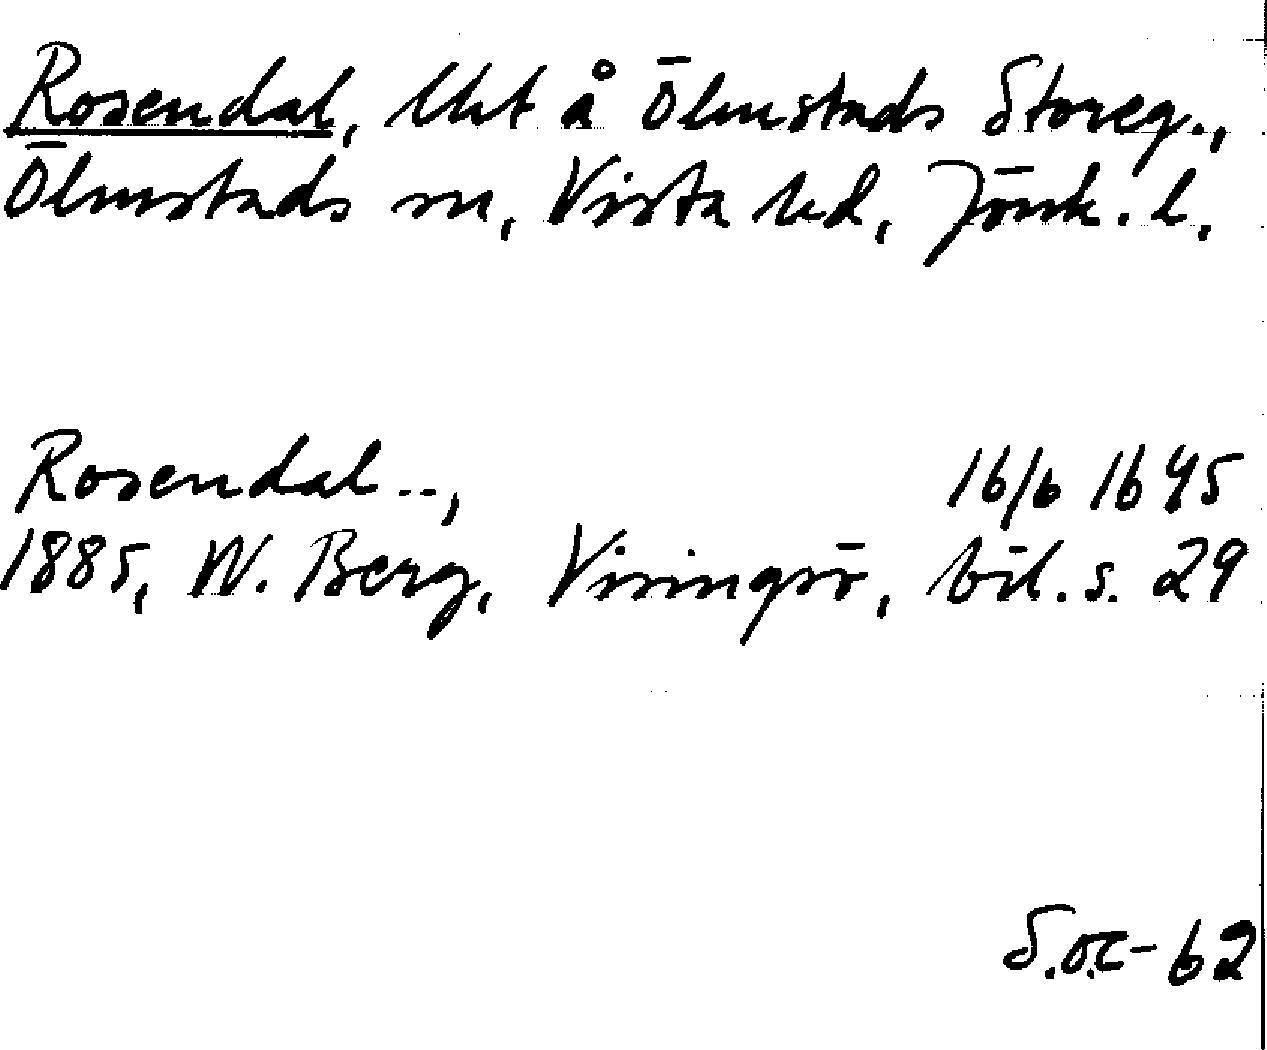 Rosendal, lht å Ölmstads Storeg.,
Ölmstads sn, Vista hd, Jönk. l.
Rosendal --, 16/6 1645
1885, W. Berg, Visingsö, bil. s. 29
S.O.C-62